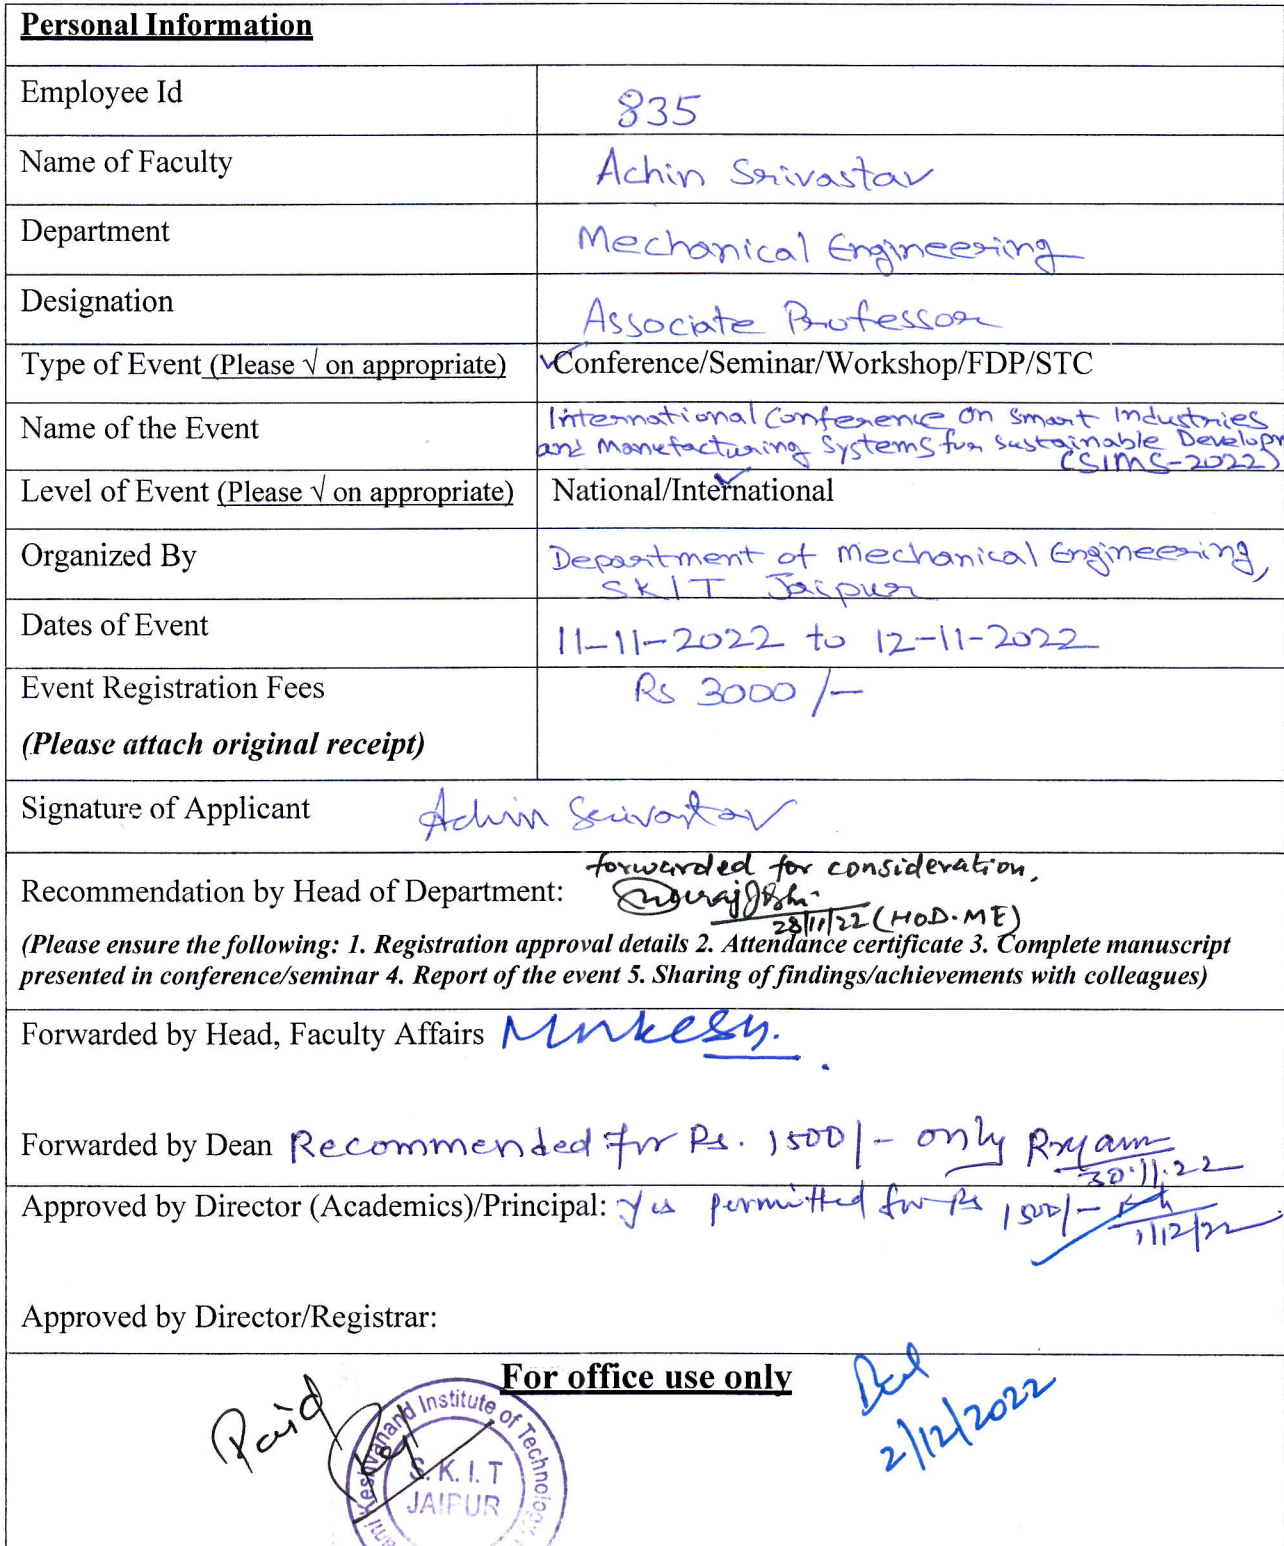 Personal Information
Employee Id 835
Name of Faculty Achin Srivastav
Department Mechanical Engineering
Designation Associate Professor
Type of Event (Please √ on appropriate) ✓Conference/Seminar/Workshop/FDP/STC
Name of the Event International Conference on Smart Industries
and Manufacturing Systems for Sustainable Developm
(SIMS-2022)
Level of Event (Please √ on appropriate) National/International ✓
Organized By Department of Mechanical Engineering,
SKIT Jaipur
Dates of Event 11-11-2022 to 12-11-2022
Event Registration Fees Rs 3000/-
(Please attach original receipt)
Signature of Applicant Achin Srivastav
forwarded for consideration,
Recommendation by Head of Department:
28/11/22 (HOD. ME)
(Please ensure the following: 1. Registration approval details 2. Attendance certificate 3. Complete manuscript
presented in conference/seminar 4. Report of the event 5. Sharing of findings/achievements with colleagues)
Forwarded by Head, Faculty Affairs Mukesh.
Forwarded by Dean Recommended for Rs. 1500/- only
30.11.22
Approved by Director (Academics)/Principal: Yes permitted for Rs 1500/-
1/12/22
Approved by Director/Registrar:
For office use only
Paid
2/12/2022
ami Keshvanand Institute of Technology
S. K. I. T
JAIPUR